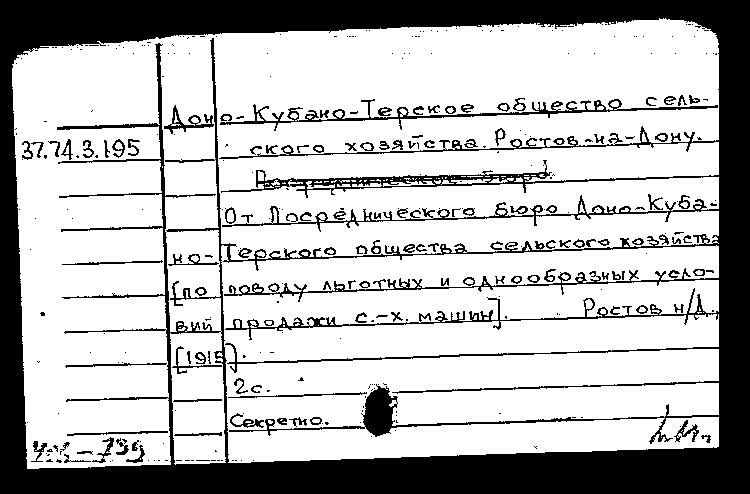 Доно-Кубано-Терское общество сель-
37.74.3.195 ского хозяйства. Ростов-на-Дону.
Посредническое бюро
От Посреднического бюро Доно-Куба-
но-Терского общества сельского хозяйства
[по поводу льготных и однообразных усло-
вий продажи с.-х. машин]. Ростов н/Д.,
[1915].
2с.
Секретно.